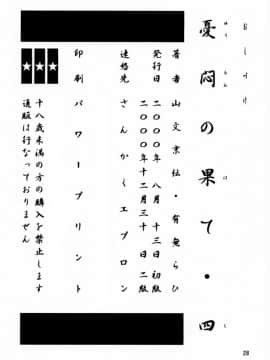 おしらけ
憂悶の果て・四
ゆう もん は し
著者 山文京伝・有無らひ
発行日 二〇〇〇年 八月 十三日 初版
二〇〇〇年十二月三十 日 二版
連絡先 さんかくエプロン
印刷 パワープリント
★★★
十八歳未満の方の購入を禁止します
通販は行なっておりません
28